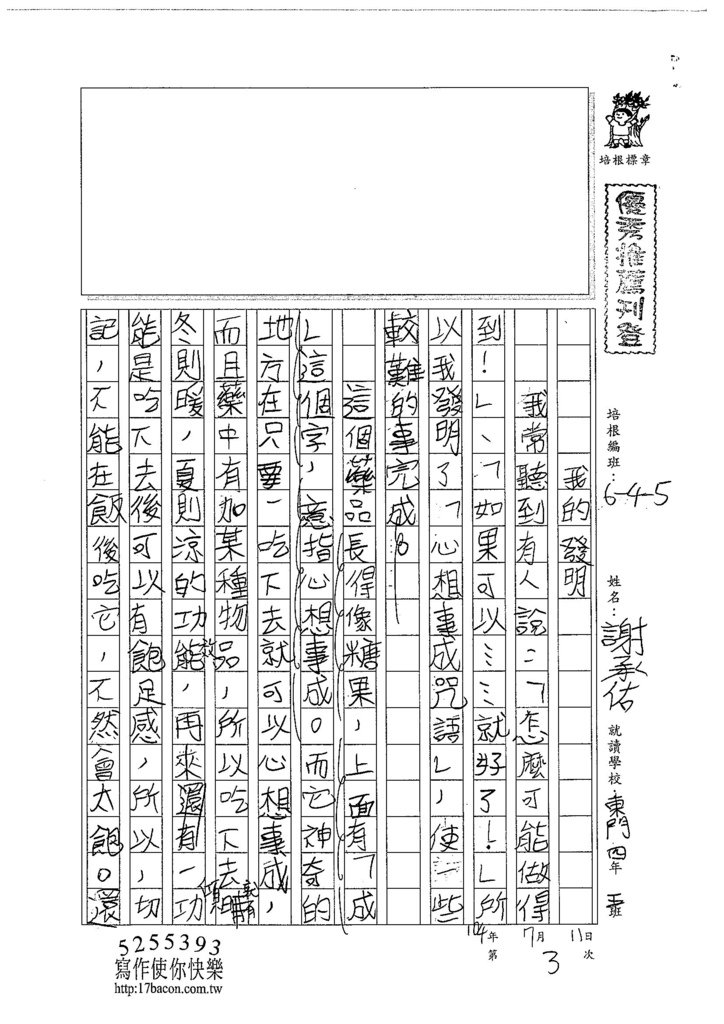 培根標章
優秀推薦刊登
培根編班：6-4-5
姓名：謝承佑
就讀學校：東門四年 班
104年7月11日
第3次
我的發明
我常聽到有人說：「怎麼可能做得
到！」、「如果可以……就好了！」所
以我發明了「心想事成咒語」，使一些
較難的事完成。
這個藥品長得像糖果，上面有「成
」這個字，意指心想事成。而它神奇的
地方在只要一吃下去就可以心想事成，
而且藥中有加某種物品，所以吃下去
冬則暖，夏則涼的功能，再來還有一功
能是吃下去後可以有飽足感，所以，切
記，不能在飯後吃它，不然會太飽。還
5255393
寫作使你快樂
http:17bacon.com.tw